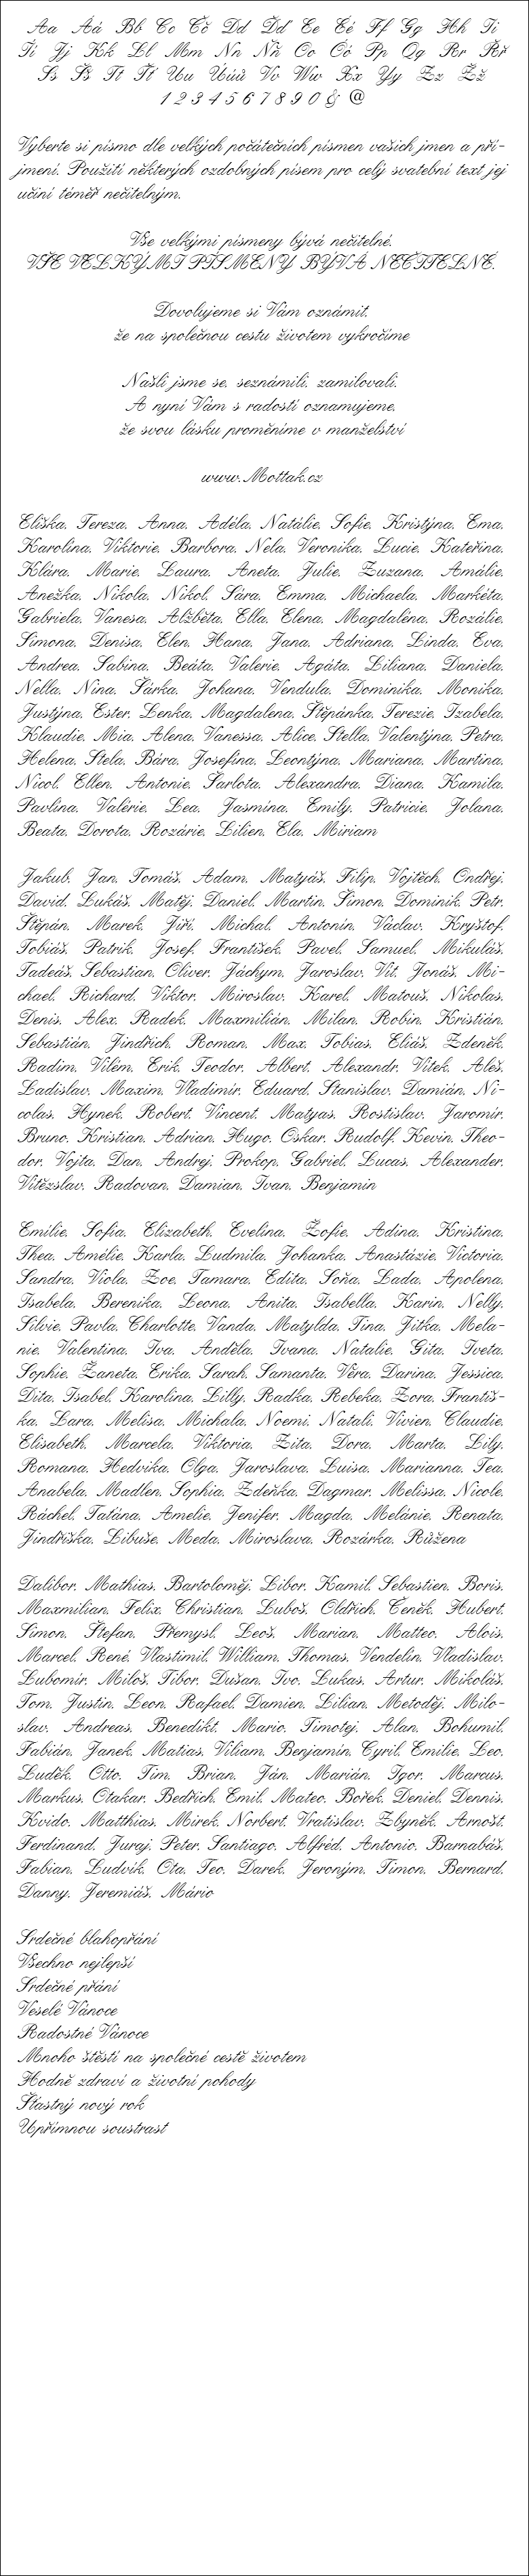 Aa Áá Bb Cc Čč Dd Ďď Ee Éé Ff Gg Hh Ii
Íí Jj Kk Ll Mm Nn Ňň Oo Óó Pp Qq Rr Řř
Ss Šš Tt Ťť Uu Úúů Vv Ww Xx Yy Zz Žž
1 2 3 4 5 6 7 8 9 0 & @
Vyberte si písmo dle velkých počátečních písmen vašich jmen a pří-
jmení. Použití některých ozdobných písem pro celý svatební text jej
učiní téměř nečitelným.
Vše velkými písmeny bývá nečitelné.
VŠE VELKÝMI PÍSMENY BÝVÁ NEČITELNÉ.
Dovolujeme si Vám oznámit,
že na společnou cestu životem vykročíme
Našli jsme se, seznámili, zamilovali.
A nyní Vám s radostí oznamujeme,
že svou lásku proměníme v manželství
www.Mottak.cz
Eliška, Tereza, Anna, Adéla, Natálie, Sofie, Kristýna, Ema,
Karolína, Viktorie, Barbora, Nela, Veronika, Lucie, Kateřina,
Klára, Marie, Laura, Aneta, Julie, Zuzana, Amálie,
Anežka, Nikola, Nikol, Sára, Emma, Michaela, Markéta,
Gabriela, Vanesa, Alžběta, Ella, Elena, Magdaléna, Rozálie,
Simona, Denisa, Elen, Hana, Jana, Adriana, Linda, Eva,
Andrea, Sabina, Beáta, Valerie, Agáta, Liliana, Daniela,
Nella, Nina, Šárka, Johana, Vendula, Dominika, Monika,
Justýna, Ester, Lenka, Magdalena, Štěpánka, Terezie, Izabela,
Klaudie, Mia, Alena, Vanessa, Alice, Stella, Valentýna, Petra,
Helena, Stela, Bára, Josefína, Leontýna, Mariana, Martina,
Nicol, Ellen, Antonie, Šarlota, Alexandra, Diana, Kamila,
Pavlína, Valérie, Lea, Jasmína, Emily, Patricie, Jolana,
Beata, Dorota, Rozárie, Lilien, Ela, Miriam
Jakub, Jan, Tomáš, Adam, Matyáš, Filip, Vojtěch, Ondřej,
David, Lukáš, Matěj, Daniel, Martin, Šimon, Dominik, Petr,
Štěpán, Marek, Jiří, Michal, Antonín, Václav, Kryštof,
Tobiáš, Patrik, Josef, František, Pavel, Samuel, Mikuláš,
Tadeáš, Sebastian, Oliver, Jáchym, Jaroslav, Vít, Jonáš, Mi-
chael, Richard, Viktor, Miroslav, Karel, Matouš, Nikolas,
Denis, Alex, Radek, Maxmilián, Milan, Robin, Kristián,
Sebastián, Jindřich, Roman, Max, Tobias, Eliáš, Zdeněk,
Radim, Vilém, Erik, Teodor, Albert, Alexandr, Vítek, Aleš,
Ladislav, Maxim, Vladimír, Eduard, Stanislav, Damián, Ni-
colas, Hynek, Robert, Vincent, Matyas, Rostislav, Jaromír,
Bruno, Kristian, Adrian, Hugo, Oskar, Rudolf, Kevin, Theo-
dor, Vojta, Dan, Andrej, Prokop, Gabriel, Lucas, Alexander,
Vítězslav, Radovan, Damian, Ivan, Benjamin
Emílie, Sofia, Elizabeth, Evelína, Žofie, Adina, Kristina,
Thea, Amélie, Karla, Ludmila, Johanka, Anastázie, Victoria,
Sandra, Viola, Zoe, Tamara, Edita, Soňa, Lada, Apolena,
Isabela, Berenika, Leona, Anita, Isabella, Karin, Nelly,
Silvie, Pavla, Charlotte, Vanda, Matylda, Tina, Jitka, Mela-
nie, Valentina, Iva, Anděla, Ivana, Natalie, Gita, Iveta,
Sophie, Žaneta, Erika, Sarah, Samanta, Věra, Darina, Jessica,
Dita, Isabel, Karolina, Lilly, Radka, Rebeka, Zora, Františ-
ka, Lara, Melisa, Michala, Noemi, Natali, Vivien, Claudie,
Elisabeth, Marcela, Viktoria, Zita, Dora, Marta, Lily,
Romana, Hedvika, Olga, Jaroslava, Luisa, Marianna, Tea,
Anabela, Madlen, Sophia, Zdeňka, Dagmar, Melissa, Nicole,
Ráchel, Taťána, Amelie, Jenifer, Magda, Melánie, Renata,
Jindřiška, Libuše, Meda, Miroslava, Rozárka, Růžena
Dalibor, Mathias, Bartoloměj, Libor, Kamil, Sebastien, Boris,
Maxmilian, Felix, Christian, Luboš, Oldřich, Čeněk, Hubert,
Simon, Štefan, Přemysl, Leoš, Marian, Matteo, Alois,
Marcel, René, Vlastimil, William, Thomas, Vendelín, Vladislav,
Lubomír, Miloš, Tibor, Dušan, Ivo, Lukas, Artur, Mikoláš,
Tom, Justin, Leon, Rafael, Damien, Lilian, Metoděj, Milo-
slav, Andreas, Benedikt, Mario, Timotej, Alan, Bohumil,
Fabián, Janek, Matias, Viliam, Benjamín, Cyril, Emilie, Leo,
Luděk, Otto, Tim, Brian, Ján, Marián, Igor, Marcus,
Markus, Otakar, Bedřich, Emil, Mateo, Bořek, Deniel, Dennis,
Kvido, Matthias, Mirek, Norbert, Vratislav, Zbyněk, Arnošt,
Ferdinand, Juraj, Peter, Santiago, Alfréd, Antonio, Barnabáš,
Fabian, Ludvík, Ota, Teo, Darek, Jeroným, Timon, Bernard,
Danny, Jeremiáš, Mário
Srdečné blahopřání
Všechno nejlepší
Srdečné přání
Veselé Vánoce
Radostné Vánoce
Mnoho štěstí na společné cestě životem
Hodně zdraví a životní pohody
Šťastný nový rok
Upřímnou soustrast